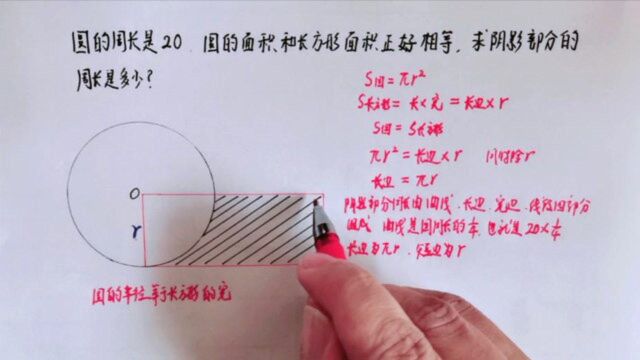 圆的周长是20,圆的面积和长方形面积正好相等,求阴影部分的
周长是多少?
S圆=πr²
S长方形=长×宽=长边×r
S圆=S长方形
πr²=长边×r 同时除r
长边=πr
O
r
阴影部分周长由曲线、长边、宽边、
组成 曲线是圆周长的¼,也就是20×¼
长边为πr,宽边为r
圆的半径等于长方形的宽